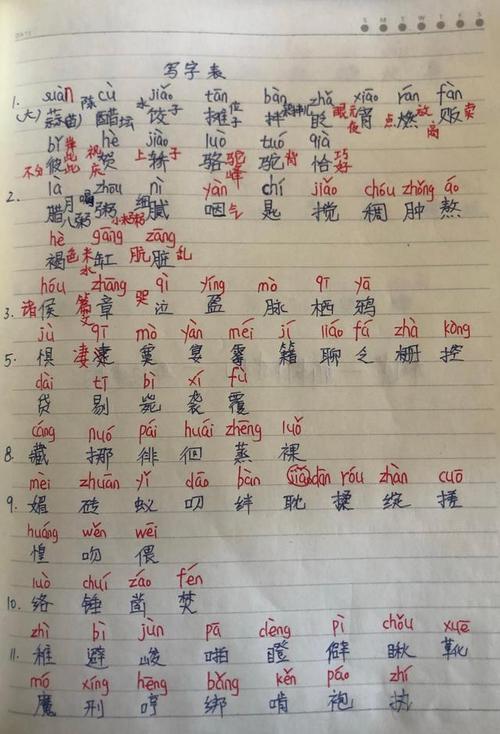 写字表
suàn cù jiǎo tān bàn zhǎ xiāo rán fàn
1. (大)蒜苗 陈醋 水饺子 摊位 拌 眨眼 元宵夜 点燃放 贩卖
bǐ hè jiào luò tuó qià
不分彼此 祝贺庆 上轿子 骆驼峰 驼背 恰巧好
là zhōu nì yàn chí jiǎo chóu zhǒng áo
2. 腊月八 喝粥 细腻 咽气 匙 搅 稠 肿 熬
hè gāng zāng
褐色 水缸 肮脏乱
hóu zhāng qì yíng mò qī yā
3. 诸侯 篇章 哭泣 盈 脉 栖 鸦
jù qī mò yàn méi jí liáo fá zhà kòng
5. 惧 凄 寞 宴 霉 籍 聊 乏 栅 控
dài tī bì xí fù
贷 剔 毙 袭 覆
cáng nuó pái huái zhēng luǒ
8. 藏 挪 徘 徊 蒸 裸
mei zhuān yǐ dāo bàn dān róu zhàn cuō
9. 媚 砖 蚁 叨 绊 耽 揉 绽 搓
huáng wěn wēi
惶 吻 偎
luò chuí záo fén
10. 络 锤 凿 焚
zhì bì jùn pā dèng pì chǒu xuē
11. 稚 避 峻 啪 瞪 僻 瞅 靴
mó xíng hēng bǎng kěn páo zhí
魔 刑 哼 绑 啃 袍 执